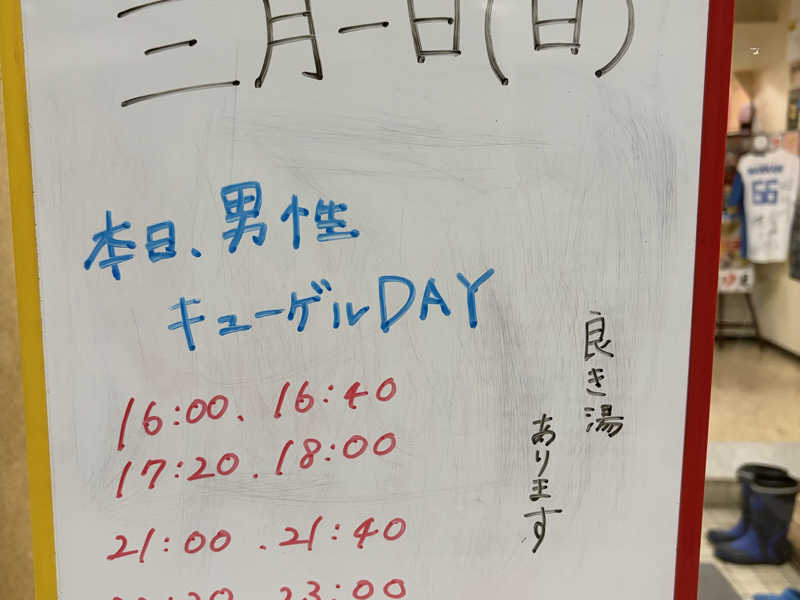 三月一日(日)
本日、男性
キューゲルDAY
16:00、16:40
17:20、18:00
21:00、21:40
23:00
良き湯
あります
66